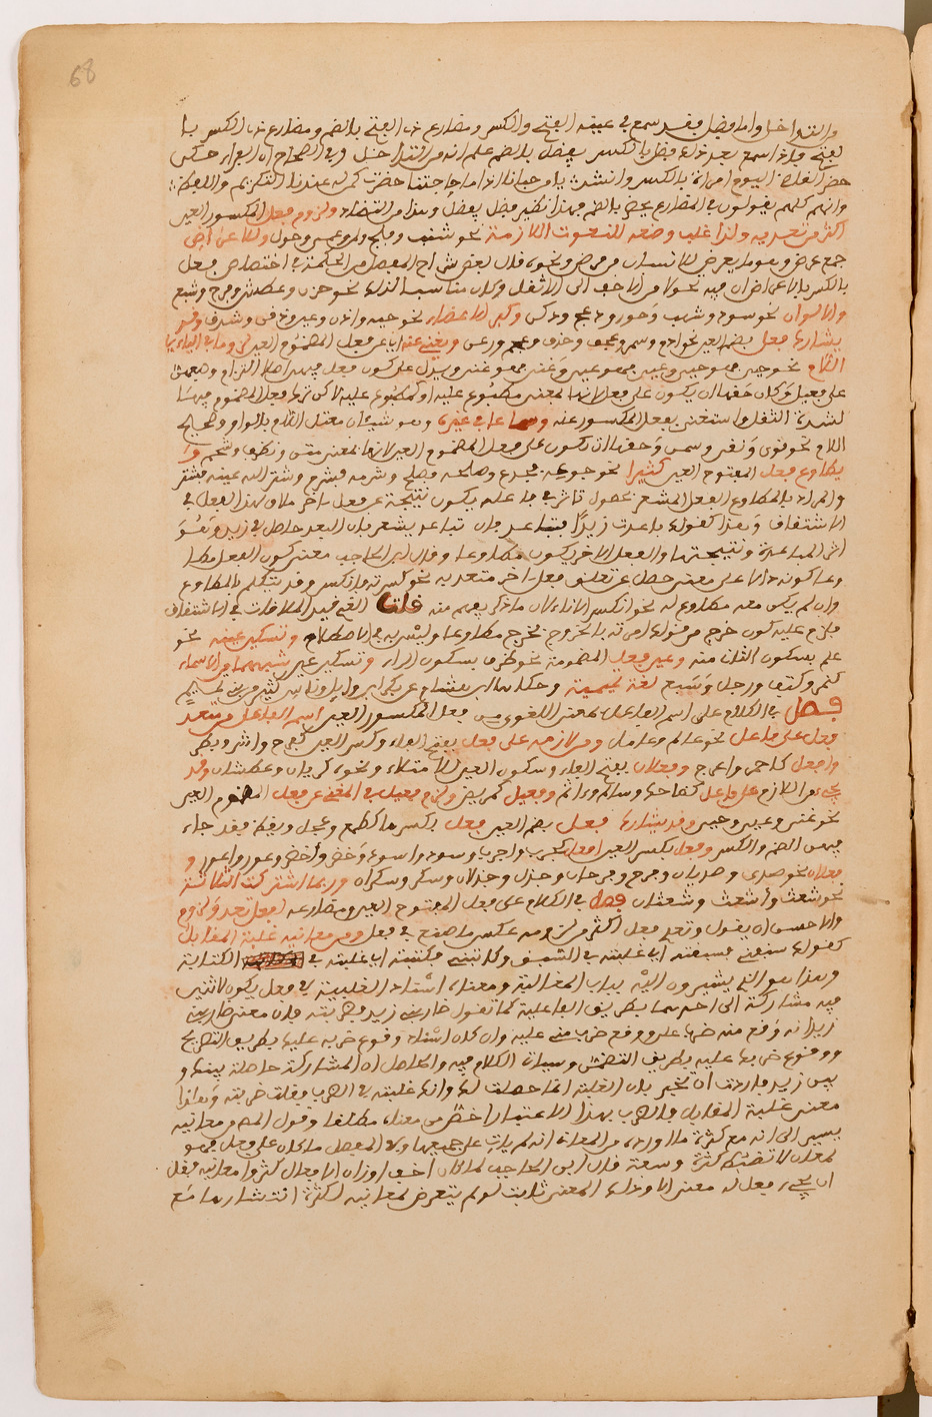 68
والتداخل واما فضل فقد سمع في عينه الفتح والكسر ومضارع ذي الفتح بالضم ومضارع ذي الكسر با
لفتح فاذا سمع بعد ذلك فضل بالكسر يفضل بالضم علم انه من التداخل وفي الصحاح ان الفراء حكى
حضر القاضي اليوم امراة بالكسر وانشد يا من جفانا اذا ما حاجتنا حضرت كمن له عندنا التكريم واللطف
وانهم كلهم يقولون في المضارع يحضر بالضم فهذا نظير فضل يفضل وهذا من التضاد ولزوم فعل المكسور العين
اكثر من تعديه ولذا غلب وضعه للنعوت اللازمة نحو شنب وفلج ولمي وعمي وحول وللاعراض
جمع عرض وهو ما يعرض للانسان من مرض ونحوه قال بعض شراح المفصل من الحكمة في اختصاص فعل
بالكسر بالاعراض ان فيه تحولا من الاخف الى الاثقل وكان مناسبا لذلك نحو حزن وعطش وفرح وشبع
والالوان نحو سود وشهب وحور ودعج ودكن وكبر الاعضاء نحو جبه واذن وعين وذقن وشدق وقد
يشارك فعل بضم العين نحو ادم وسمر وعجف وخرق وعجم ورعن ويغني عنه اي عن فعل المضموم العين لزوما في اليائي
اللام نحو حيي فهو حيي وعيي فهو عيي وغني فهو غني ويدل على كون فعل فيهن اصلا التزام
على فعيل وكان حقها ان يكون على فعل لانها لمعنى مطبوع عليه او كمطبوع عليه لاكن ترك فعل المضموم فيها
لشدة الثقل واستغني بفعل المكسور عنه وسماعا في غيره وهو شيئان معتل اللام بالواو وصحيح
اللام نحو قوي ونقي وسمن وحقها ان تكون على فعل المضموم العين لانها لمعنى متن ونظف وشحم و
يطاوع فعل المفتوح العين كثيرا نحو جدعه فجدع وصلمه فصلم وشرمه فشرم وشتر الله عينه فشتر
والمراد بالمطاوع الفعل المشعر بحصول تاثر في فاعله يكون نتيجة عن فعل اخر ملاق لهذا الفعل في
الاشتقاق وهذا كقولك باعدت زيدا فتباعد فان تباعد يشعر بان البعد حاصل في زيد وهو
اثر المباعدة ونتيجتها والفعل الاخر يكون مطاوعا وقال ابن الحاجب معنى كون الفعل مطا
وعا كونه دالا على معنى حصل عن تعلق فعل اخر متعد به نحو كسرته فانكسر وقد يتكلم بالمطاوع
وان لم يكن معه مطاوع له نحو انكسر الاناء لان ما ذكر يفهم منه قلت الغي قيد الملاقات في الاشتقاق
فلزم عليه كون خرج من قولك امرته بالخروج فخرج مطاوعا وليس به في الاصطلاح وتسكين عينه نحو
علم بسكون الثاني منه وعين فعل المضمومة نحو ظرف بسكون الراء وتسكين عين شبههما من الاسماء
كنمر وكتف ورجل وسبع لغة تميمية وحكاها ابن هشام عن بكر ابن وائل وناس كثير من تميم
فصل في الكلام على اسم الفاعل بمعنى اللغوي من فعل المكسور العين اسم الفاعل من متعد
فعل على فاعل نحو عالم وعامل ومن لازمه على فعل بفتح الفاء وكسر العين كفرح واشر وبطر
وافعل كاحمر واعرج وفعلان بفتح الفاء وسكون العين للامتلاء ونحوه كريان وعطشان وقد
يجيء من اللازم على فاعل كضاحك وسالم واثم وفعيل كمريض ولزم فعيل في المغني عن فعل المضموم العين
نحو غني وعيي وحيي وقد يشارك فعل بضم العين فعل بكسرها كطمع وعجل ويقظ فقد جاء
فيهن الضم والكسر وفعل بكسر العين افعل كجرب واجرب وسود واسود وخضر واخضر وعور واعور و
فعلان نحو صدي وصديان وفرح وفرحان وجذل وجذلان وسكر وسكران وربما اشتركت الثلاثة
نحو شعث واشعث وشعثان فصل في الكلام على فعل المفتوح العين ومضارعه لفعل تعد ولزوم
والاحسن ان يقول وتعدي فعل اكثر من لزومه عكس ما صنع في فعل ومن معانيه غلبة المقابل
كقولك سابقني فسبقته اي غلبته في السبق وكاتبني فكتبته اي غلبته في الكتابة
وهذا هو الذي يشيرون اليه بباب المغالبة ومعناه اسناد الغلبة في فعل يكون لاثنين
فيه مشاركة الى احدهما بطريق الفاعلية كما تقول ضاربني زيد فضربته فان معنى ضاربني
زيد انه وقع منه ضرب علي ووقع ضرب مني عليه وان كان اسناد وقوع ضربه عليك بطريق التصريح
ووقوع ضربك عليه بطريق التضمن وسياق الكلام فيه والحاصل ان المشاركة حاصلة بينك و
بين زيد فاردت ان تخبر بان الغلبة انما حصلت لك وانك غلبته في الضرب فقلت ضربته وهذا
معنى غلبة المقابل فالضرب بهذا الاعتبار اخص من معناه مطلقا وقول المص ومن معانيه
يشير الى انه مع كثرة ما اورده من المعاني انه لم يات على جميعها وفي المفصل ما كان على فعل فهو
لمعان لا تضبط كثرة وسعة قال ابن الحاجب لما كان اخف اوزان الافعال كثروا معانيه فقل
ان يجيء فعل له معنى الا وذلك المعنى ثابت له ولم يتعرض لمعانيه لكثرة انتشارها مع